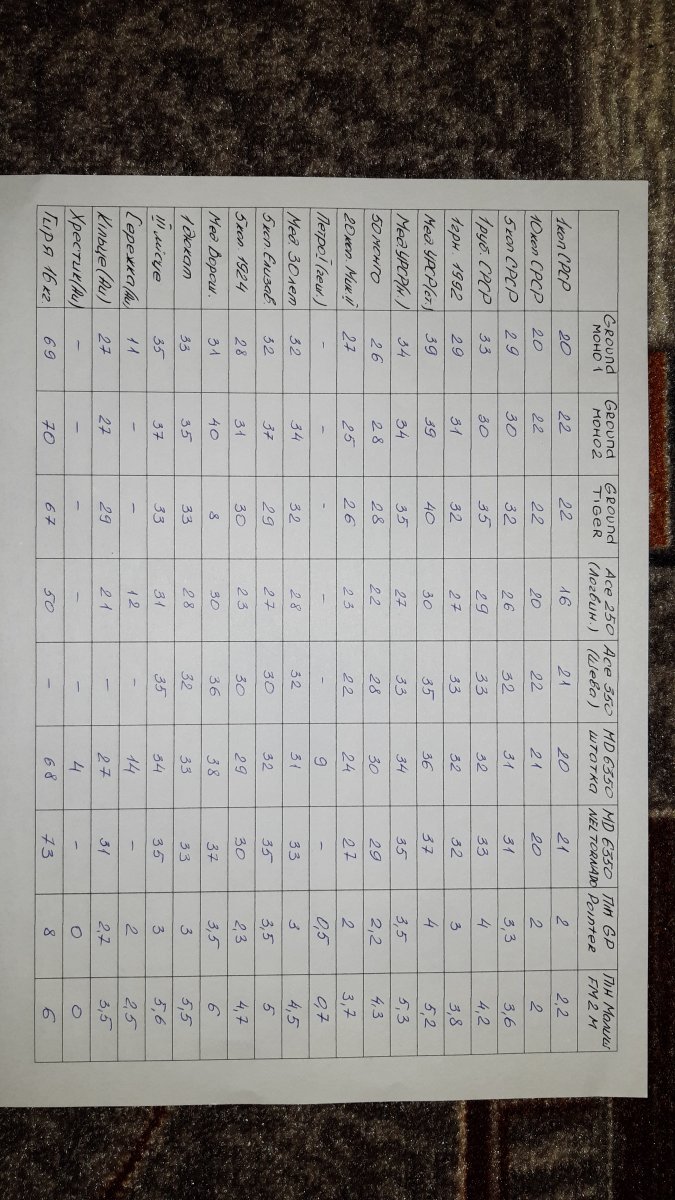 GROUND МОНО1 GROUND МОНО2 GROUND TIGER Ace 250 (Логвин.) Ace 350 (Шева) MD 6350 штатка MD 6350 NEL TORNADO ПІН GP Pointer ПІН Малиш FM2M
1 коп СРСР 20 22 22 16 21 20 21 2 2,2
10 коп СРСР 20 22 22 20 22 21 20 2 2
5 коп СРСР 29 30 32 26 32 31 31 3,3 3,6
1 руб. СРСР 33 30 35 29 33 32 33 4 4,2
1 грн. 1992 29 31 32 27 33 32 32 3 3,8
Мед УРСР(ст.) 39 39 40 30 35 36 37 4 5,2
Мед УРСР(н.) 34 34 35 27 33 34 35 3,5 5,3
50 монго 26 28 28 22 28 30 29 2,2 4,3
20 коп Мик.ІІ 27 25 26 23 22 24 27 2 3,7
Петро І (чеш.) - - - - - 9 - 0,5 0,7
Мед. 30 лет 32 34 32 28 32 31 33 3 4,5
5 коп Елизав 32 37 29 27 30 32 35 3,5 5
5 коп 1924 28 31 30 23 30 29 30 2,3 4,7
Мед Ворош. 31 40 8 30 36 38 37 3,5 6
1 дукат 33 35 33 28 32 33 33 3 5,5
ІІІ місце 35 37 33 31 35 34 35 3 5,6
Сережка(Au) 11 - - 12 - 14 - 2 2,5
Кільце(Au) 27 27 29 21 - 27 31 2,7 3,5
Хрестик(Au) - - - - - 4 - 0 0
Гиря 16 кг 69 70 67 50 - 68 73 8 6